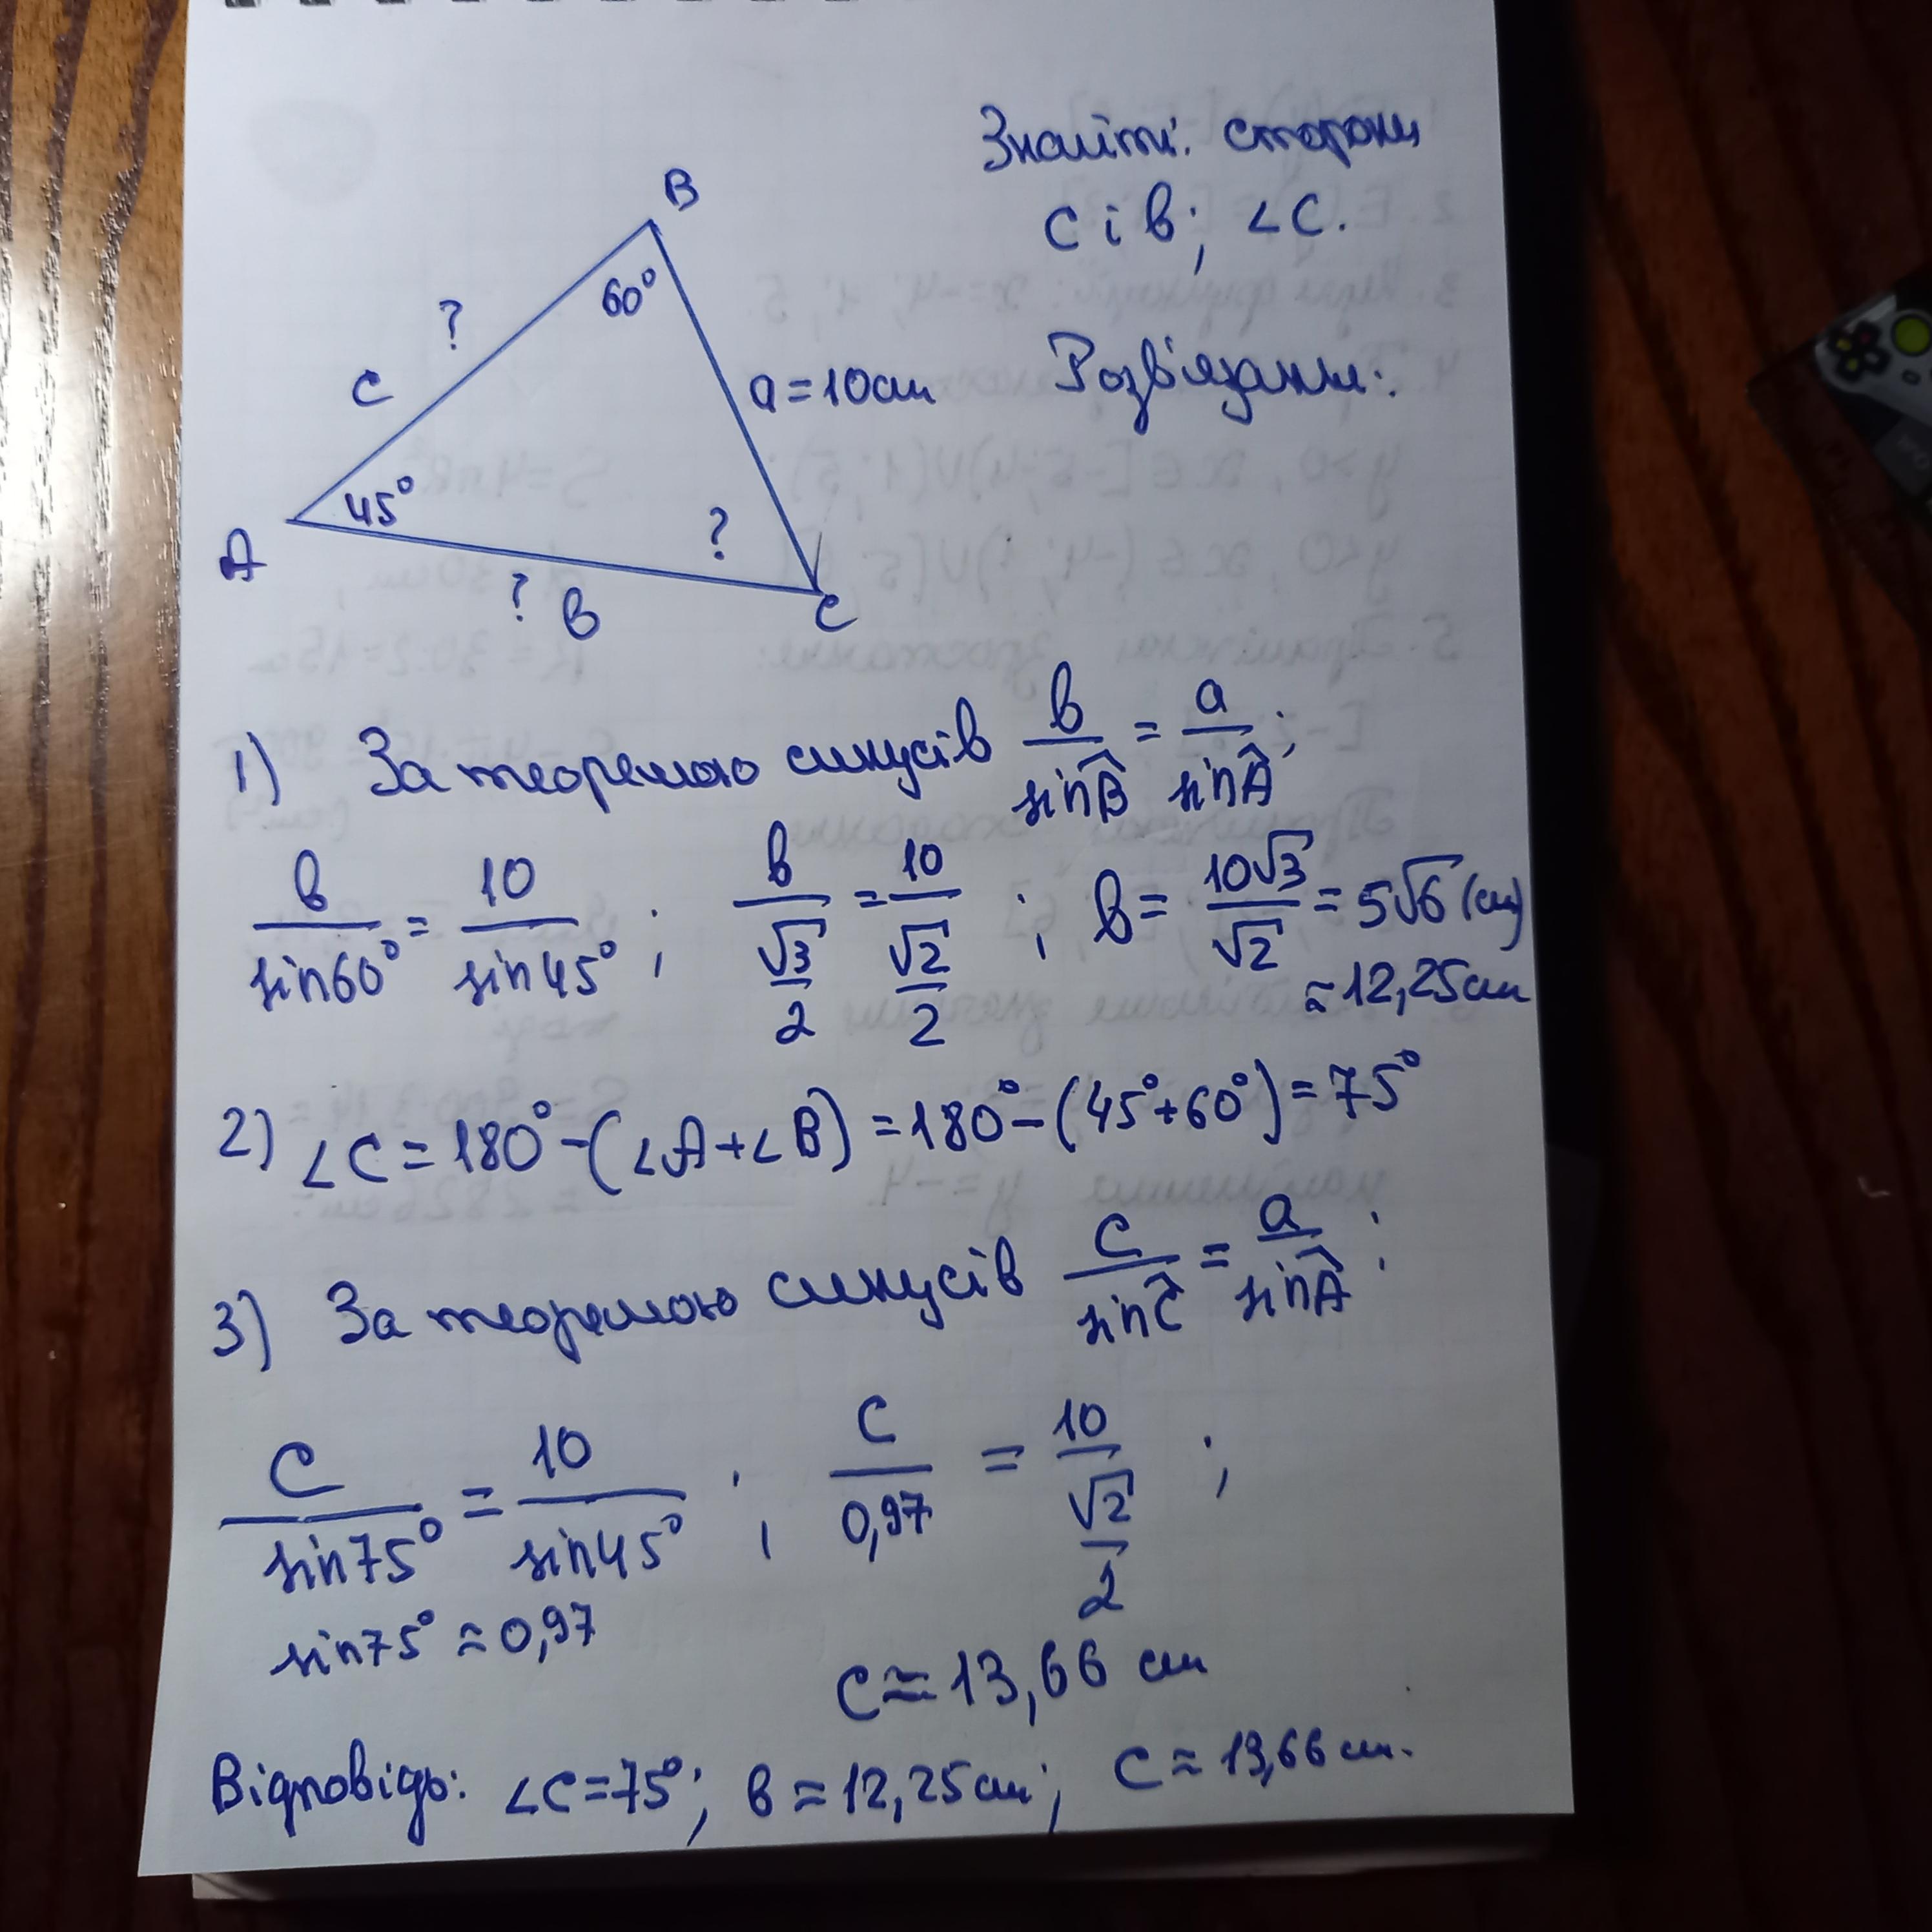 Знайти: сторони
c i b; ∠C.
B
60°
?
c
a = 10см
Розв'язання:
45°
A
?
? b
C
1) За теоремою синусів b/sinB̂ = a/sinÂ;
b/sin60° = 10/sin45°; b/(√3/2) = 10/(√2/2); b = 10√3/√2 = 5√6 (см)
≈ 12,25см
2) ∠C = 180° – (∠A + ∠B) = 180° – (45° + 60°) = 75°
3) За теоремою синусів c/sinĈ = a/sinÂ;
c/sin75° = 10/sin45°; c/0,97 = 10/(√2/2);
sin75° ≈ 0,97
c ≈ 13,66 см
Відповідь: ∠C = 75°; b ≈ 12,25см; c ≈ 13,66 см.